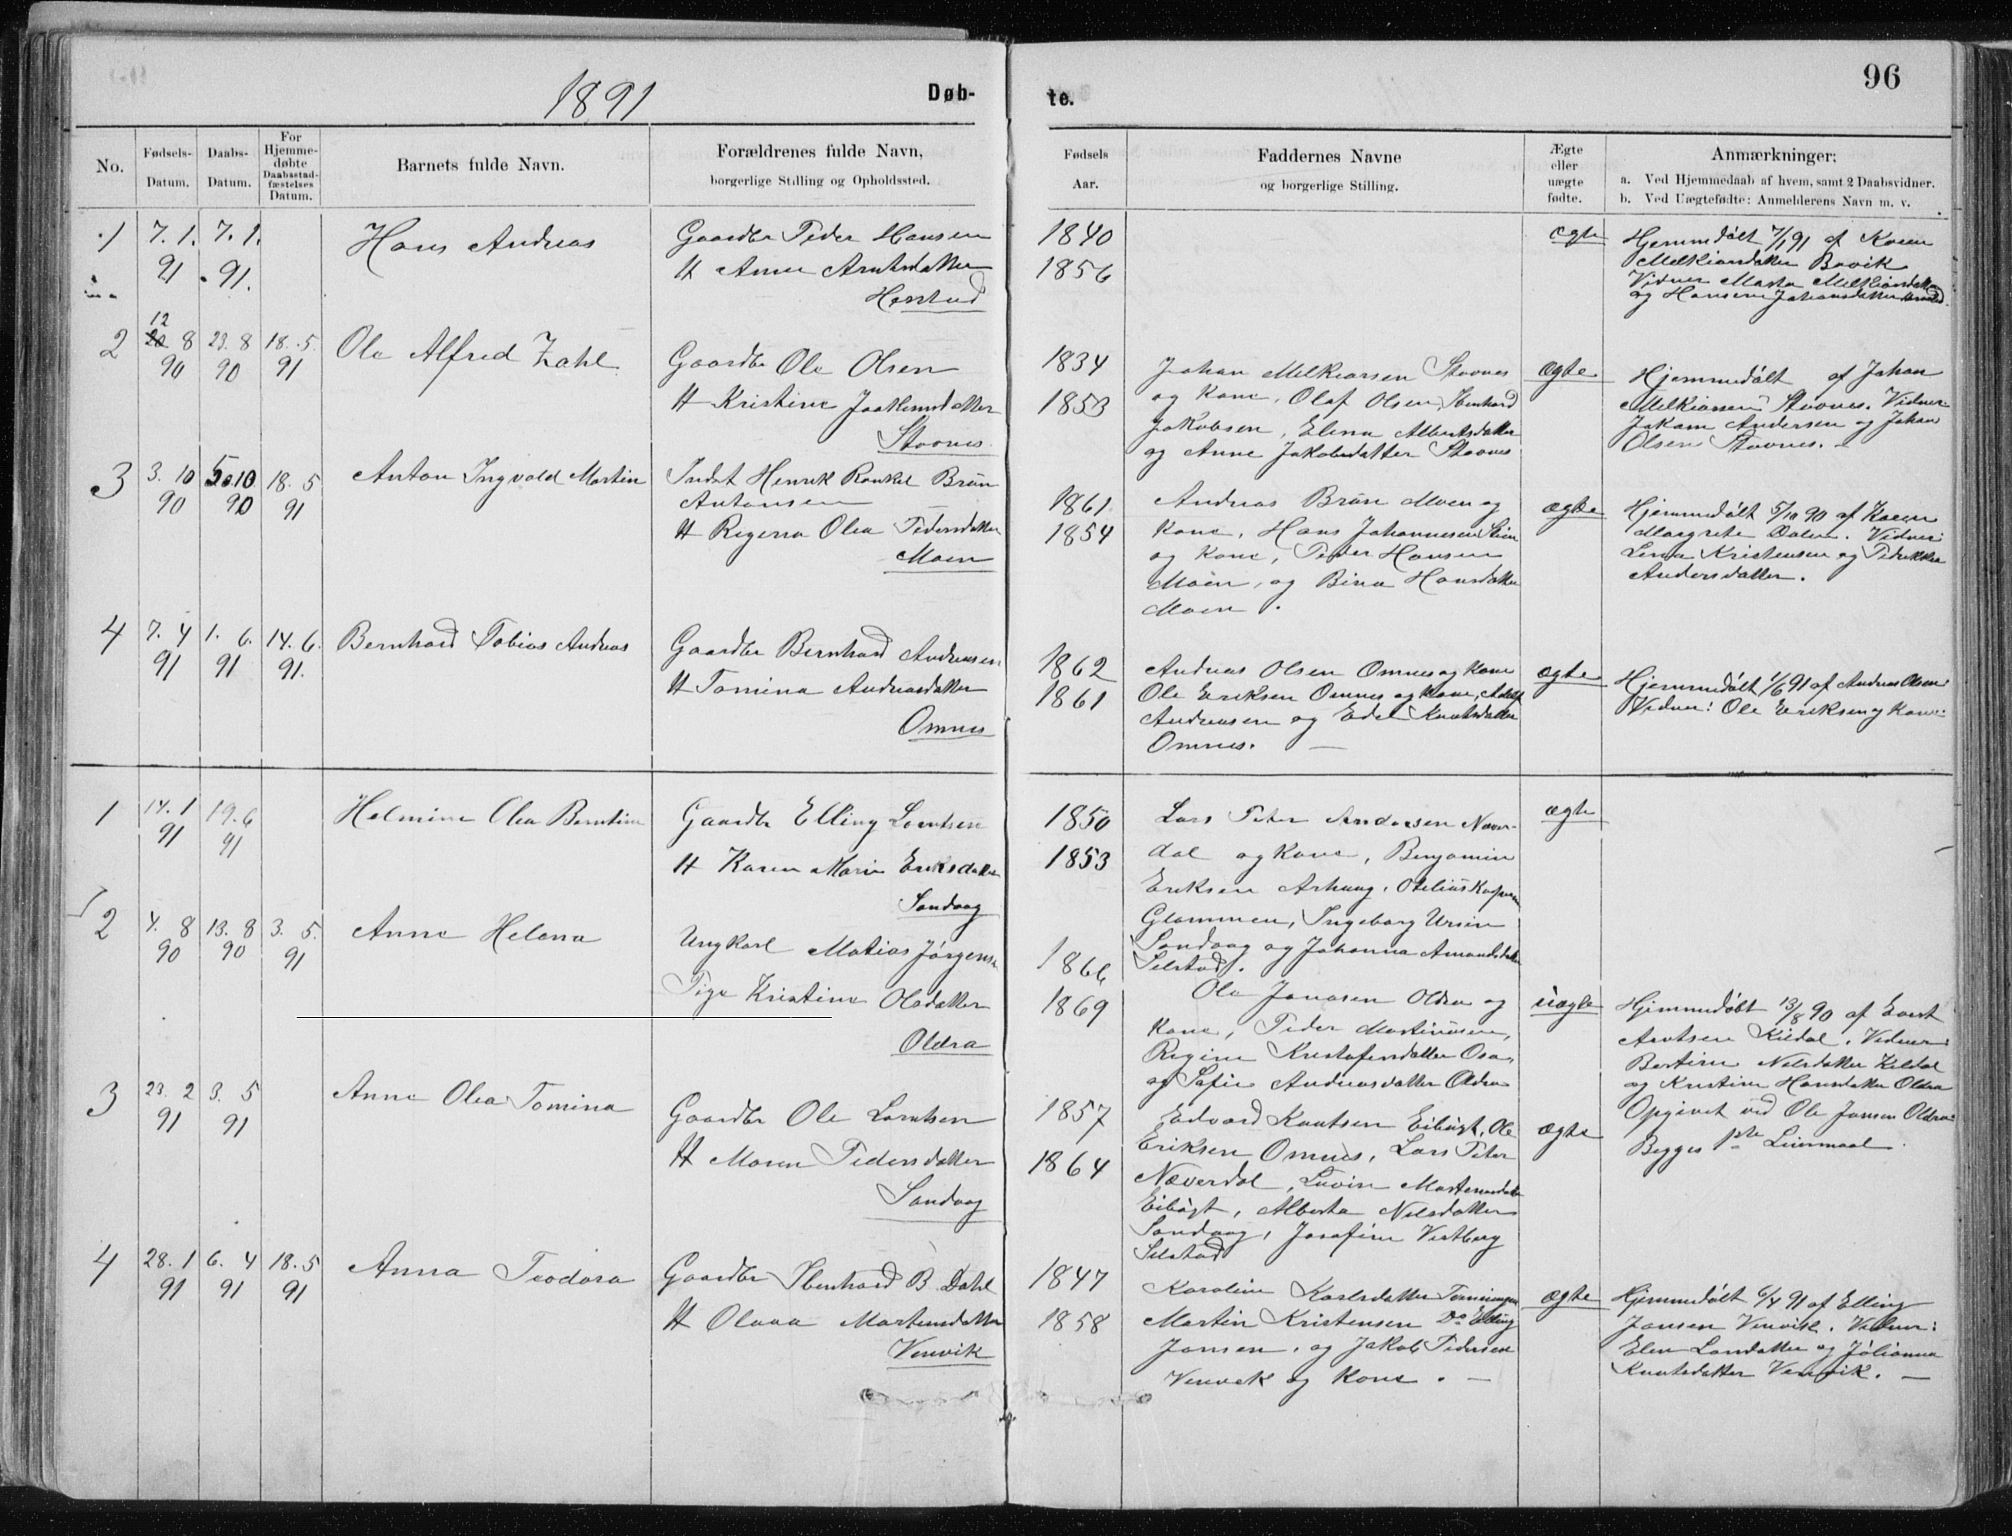 1891
Døb-
te.
96
No.
Fødsels-
Datum.
Daabs-
Datum.
For
Hjemme-
døbte
Daabsstad-
fæstelses
Datum.
Barnets fulde Navn.
Forældrenes fulde Navn,
borgerlige Stilling og Opholdssted.
Fødsels
Aar.
Faddernes Navne
og borgerlige Stilling.
Ægte
eller
uægte
fødte.
Anmærkninger:
a. Ved Hjemmedaab af hvem, samt 2 Daabsvidner.
b. Ved Uægtefødte: Anmelderens Navn m. v.
1 7. 1. 7. 1.
91 91.
Hans Andreas
Gaardbr Peder Hansen
H Anne Arntsdatter
1840
1856
ægte
Hjemmedøbt 7/1 91 af
Melkiorsdatter Bovik
Vidner Marta Melkiorsdatter
og Hansine Johansdatter
2 12
8 23. 8 18. 5.
90 90 91
Ole Alfred Zahl
Gaardbr Ole Olsen
H Kristine
Stoones
1834
1853
Johan Melkiorsen Stoones
og Kone, Olaf Olsen, Ibenhard
Jakobsen, Elena Albertsdatter
og Anne Jakobsdatter Stoones
ægte
Hjemmedøbt af Johan
Melkiorsen Stoones. Vidner:
Andersen og Johan
Olsen Stoones.
3 3. 10 5. 10 18. 5
90 90 91
Anton Ingvald Martin
Indst Henrik Ronkel Brun
Antonsen
H Regina Olea Pedersdatter
Moen
1861
1854
Andreas Brun Moen og
Kone, Hans Johannesen
og Kone, Peder Hansen
Moen, og Bina Hansdatter
Moen.
ægte
Hjemmedøbt 5/10 90 af Karen
Margrete Dalen. Vidner:
Lena Kristensen og Petrikke
Andersdatter.
4 7. 4 1. 6. 14. 6.
91 91 91.
Bernhard Tobias Andreas
Gaardbr Bernhard Andreasen
H Tomina Andreasdatter
Omnes
1862
1861
Andreas Olsen Omnes og Kone
Ole Eriksen Omnes og Kone, Adolf
Andreasen og Edel Knutsdatter
Omnes.
ægte
Hjemmedøbt 1/6 91 af Andreas Olsen.
Vidner: Ole Eriksen og Kone.
1 14. 1 19. 6
91 91
Helmine Olea Berntine
Gaardbr Elling Lorntsen
H Karen Marie Eriksdatter
Sandaag
1850
1853
Lars Peter Andersen Næver-
dal og Kone, Benjamin
Eriksen Arhaug, Otelius
Glommen, Ingeborg Ursin
Sandaag og Johanna Amundsdatter
Selstad.
ægte
2 4. 8 13. 8 3. 5.
90 90 91
Anne Helena
Ungkarl Matias Jørgensen
Pige Kristine Olsdatter
Oldra
1866
1869
Ole Jonasen Oldra og
Kone, Peder Martinusen,
Regine Kristofersdatter Osa,
og Sofie Andreasdatter Oldra
uægte
Hjemmedøbt 13/8 90 af Evert
Arntsen Kildal. Vidner:
Bertine Nilsdatter Kildal
og Kristine Hansdatter Oldra
Opgivet ved Ole Jonsen Oldra.
Begges 1ste Leiermaal
3 23. 2 3. 5
91 91
Anne Olea Tomina
Gaardbr Ole Lorntsen
H Maren Pedersdatter
Sandaag
1857
1864
Edvard Knutsen Eibugt, Ole
Eriksen Omnes, Lars Peter
Næverdal, Luvin Mortensdatter
Eibugt, Alberta Nilsdatter
Sandaag, Josefine Vestberg
Selstad
ægte
4 28. 1 6. 4 18. 5
91 91 91
Anna Teodora
Gaardbr Ibenhard B. Dahl
H Olava Mortensdatter
Venvik
1847
1858
Karoline Karlsdatter
Martin Kristensen Do Elling
Jonsen, og Jakob Pedersen
Venvik og Kone.
ægte
Hjemmedøbt 6/4 91 af Elling
Jonsen Venvik. Vidner:
Elen Larsdatter og Julianna
Knutsdatter Venvik.